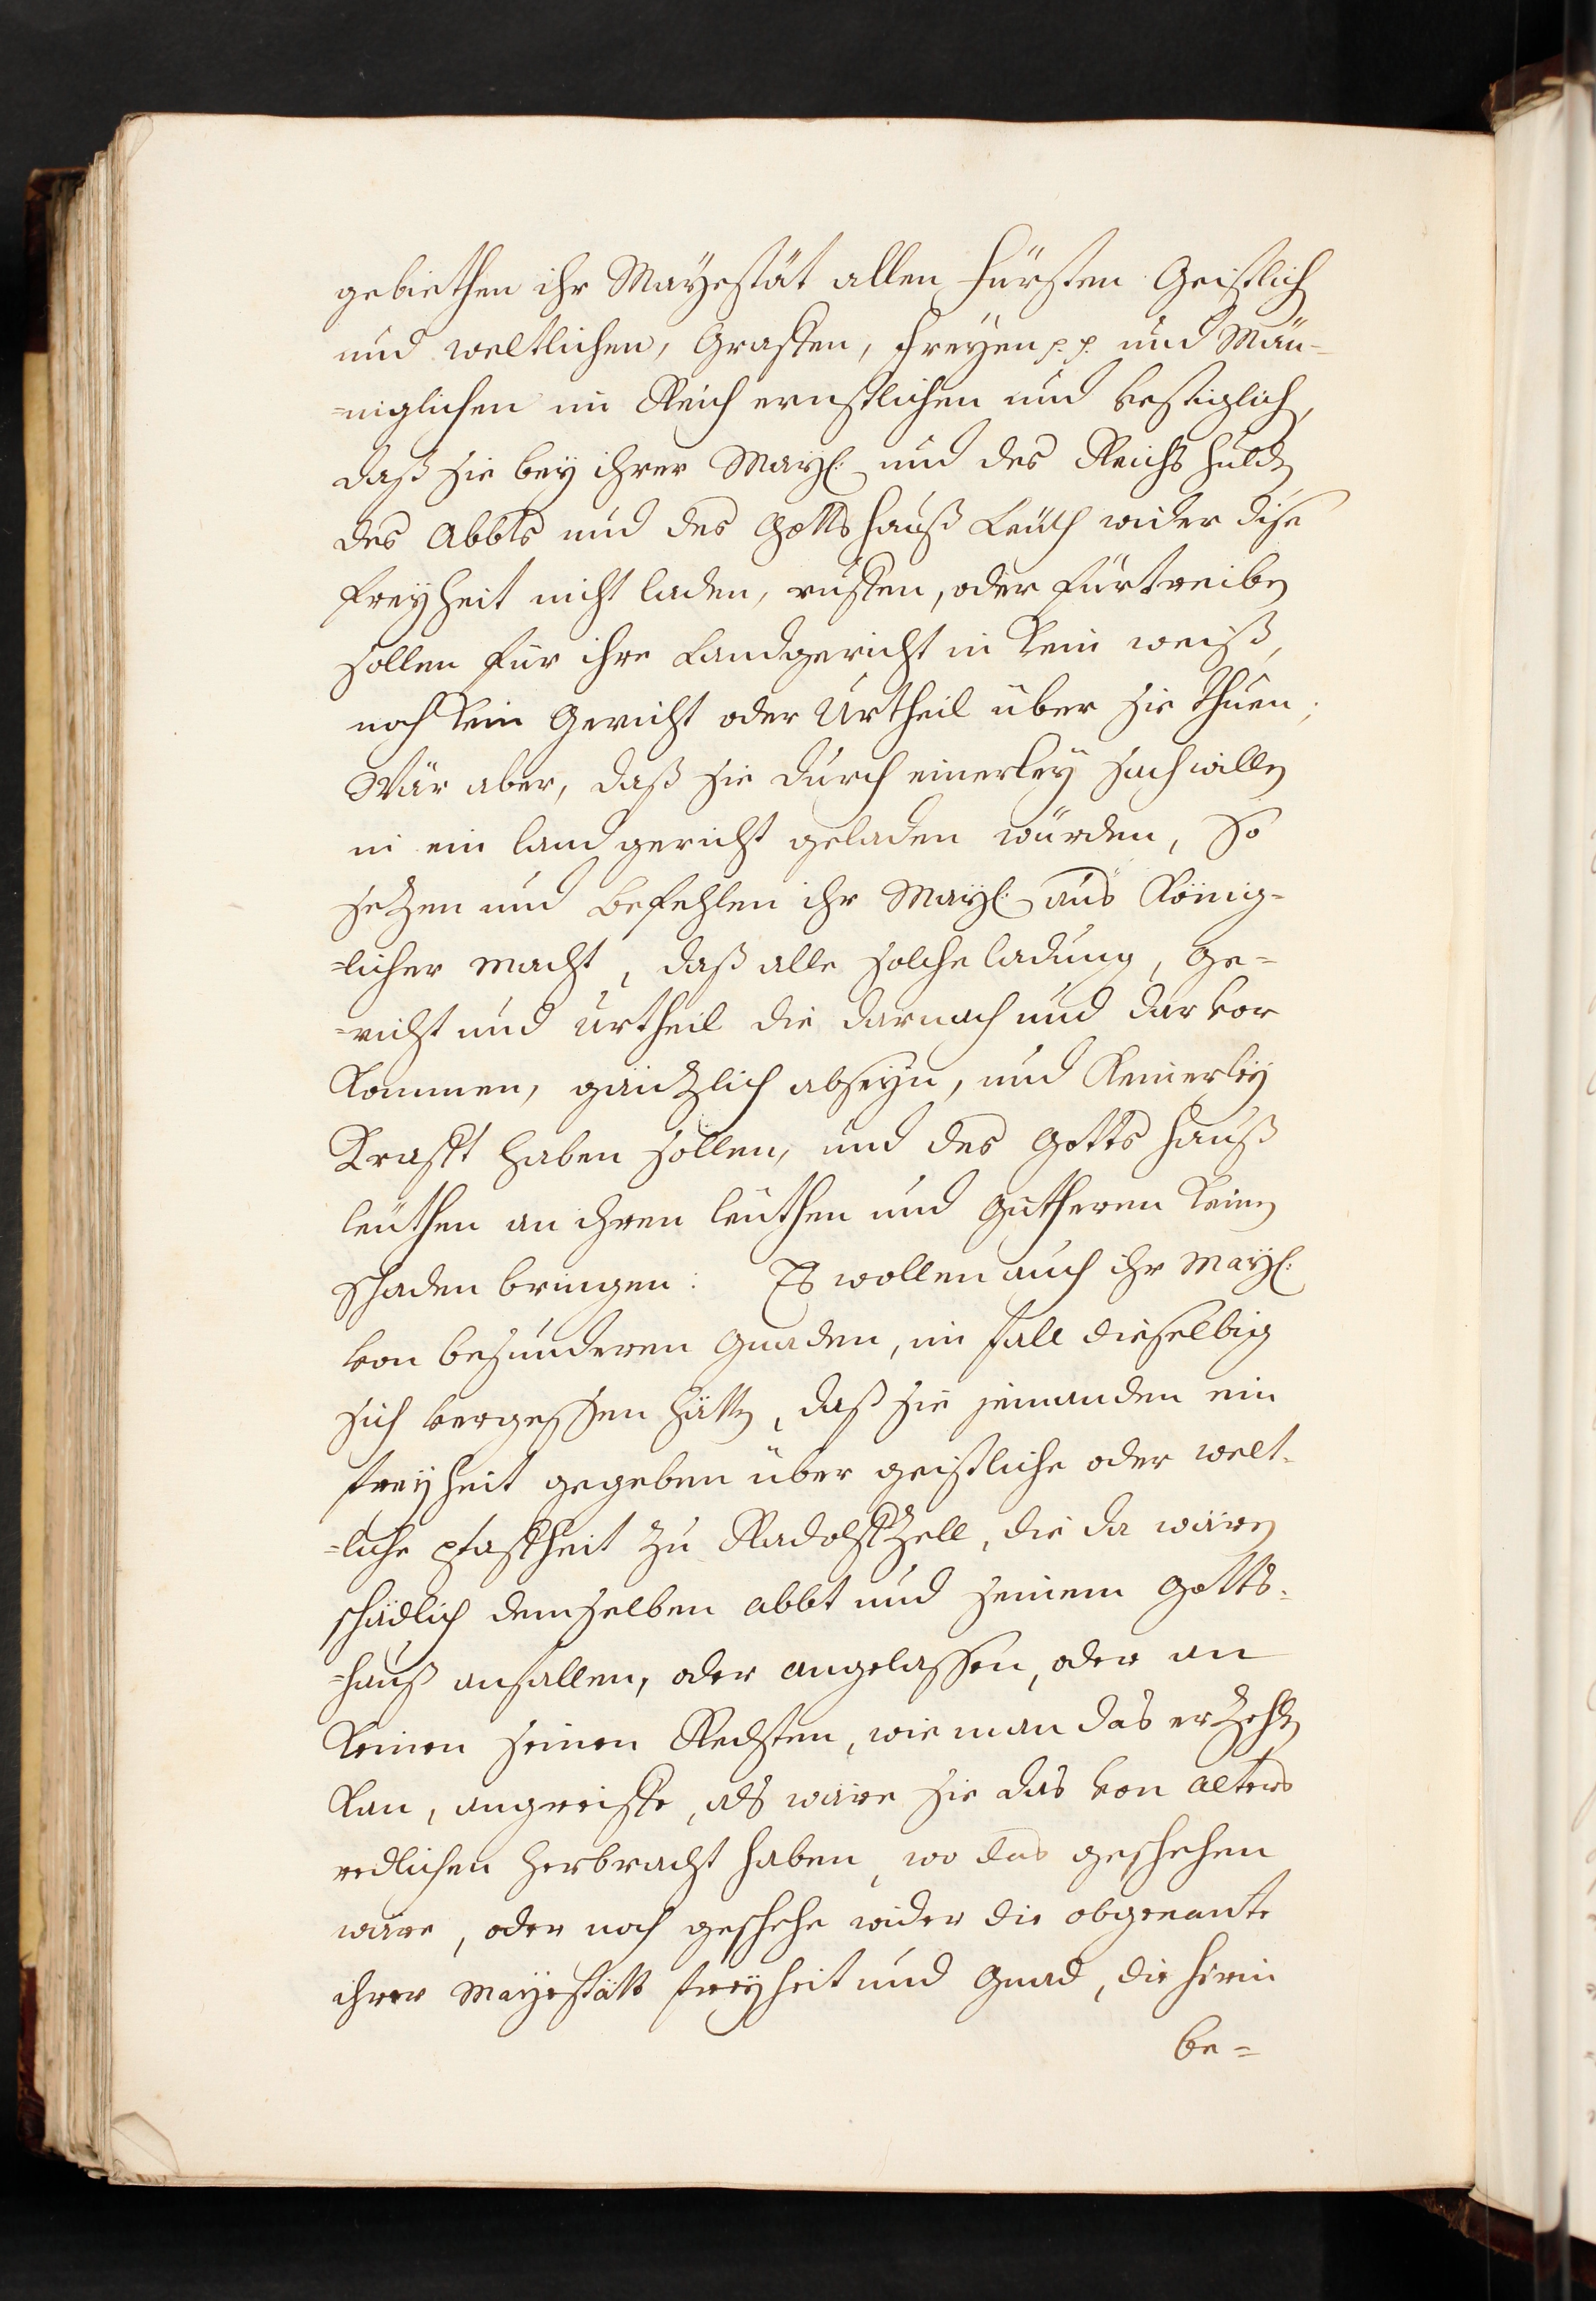 gebiethen ihr Mayestät allen fürsten Geistlich
und weltlichen, Graffen, freyen p. p. und Män-
-niglichen im Reich ernstlichen und vestiglich,
daß sie bey ihrer May: und des Reichs hulden
des Abbts und des Gotts hauß Leüth wider dise
freyheit nicht laden, ruffen, oder fürtreiben
sollen für ihre Landgericht in kein weiß,
noch kein Gericht oder Urtheil über sie thuen;
Wär aber, daß sie durch einerley sach willen
in ein land gericht geladen würden, so
setzen und befehlen ihr May: aus König-
-licher macht, daß alle solche ladung, ge-
-richt und urtheil die darnach und darvor
kommen, gäntzlich abseyn, und keinerley
Krafft haben sollen, und des Gotts hauß
leüthen an ihren leüthen und Güthern keinen
schaden bringen: Es wollen auch ihr May:
von besunderen Gnaden, im fall dieselbig
sich vergessen hätten, daß sie jemanden ein
freyheit gegeben über geistliche oder welt-
-liche pfaffheit zu Radolffzell, die da wären
schädlich demselben abbt und seinem Gotts-
-hauß anfallen, oder angelassen, oder an
keinen seinen Rechten, wie man das erzehlen
kan, angreiffe, als wäre sie das von alters
redlichen herbracht haben, wo das geschehen
wäre, oder noch geschehe wider die obgenante
ihrer Mayestätt freyheit und Gnad, die hierin
be-